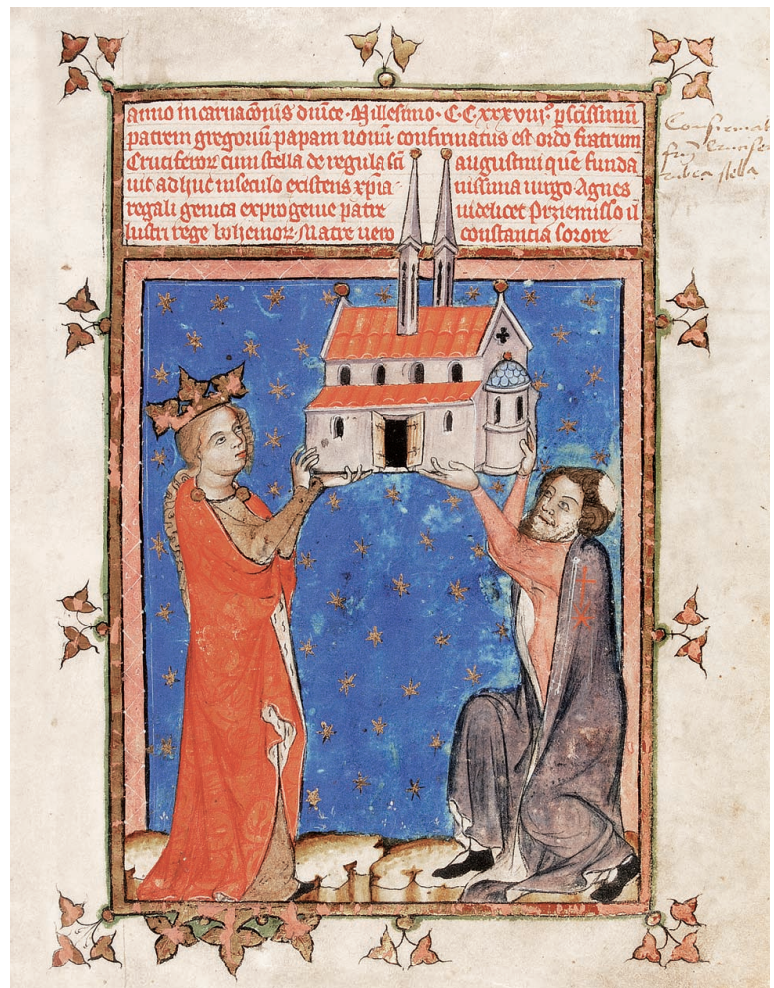 anno incarnac̄onis diuīce · Millesimo · C · C · xxxviiᵒ · p sc̄issimū
patrem gregoriū papam nonū confirmatus est ordo fratrum
Cruciferoꝝ cum stella de regula sc̄i augustini quē funda
uit adhuc in seculo existens xp̄ia nissima uirgo Agnes
regali genita ex progenie patre uidelicet Prziemislo il
lustri rege bohemoꝝ · Matre uero constancia sorore